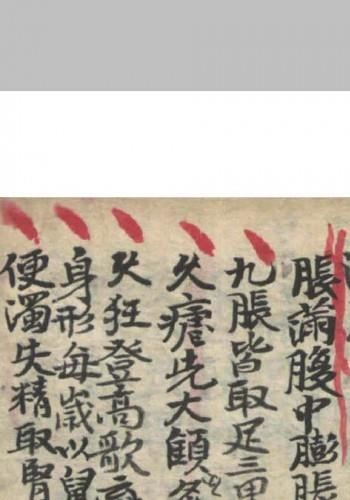 脹滿腹中膨脹
九脹皆取足三里
久瘧先大顀
久狂登高歌
身形每歲以鼠
便濁失精取腎